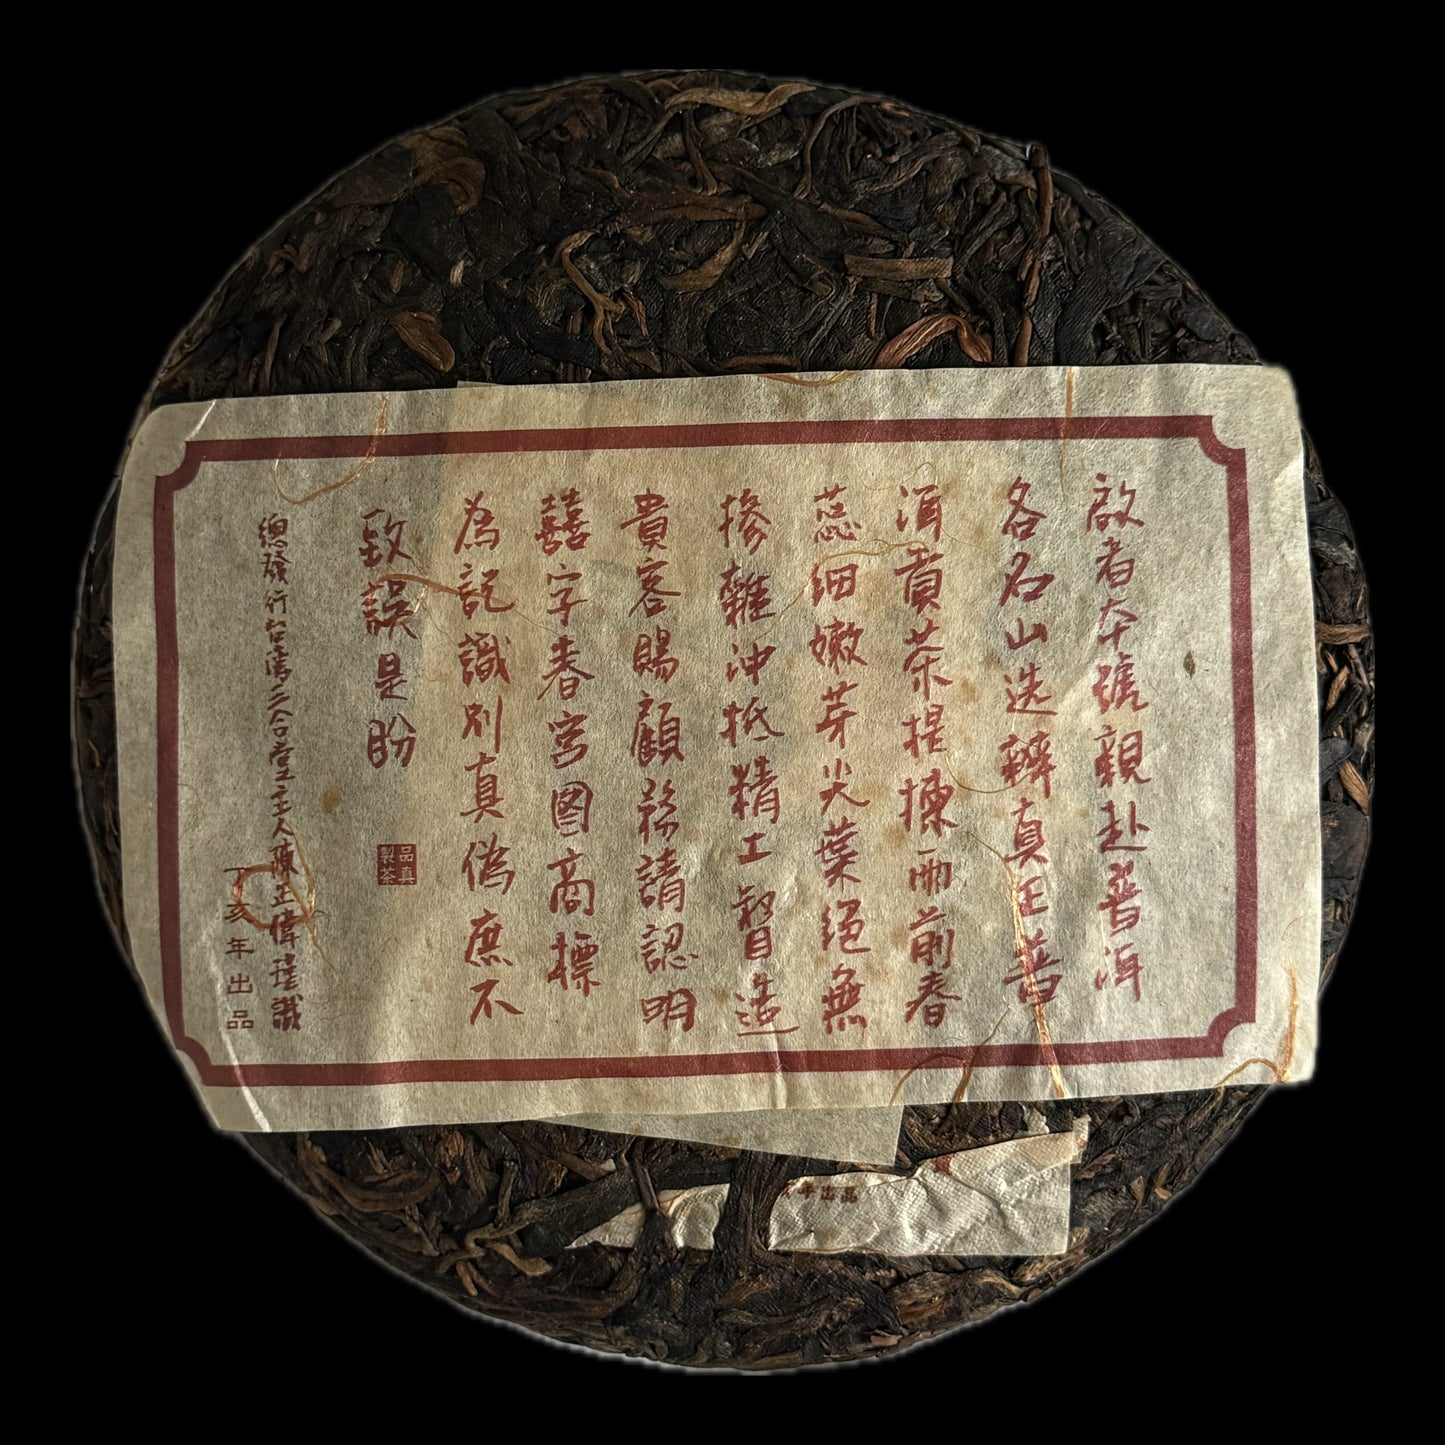 啟者本號親赴普洱
各名山选辦真正普
洱貢茶提揀雨前春
蕊细嫩芽尖葉絕無
摻雜沖抵精工督造
貴客賜顧務請認明
囍字春宮图商標
為記識别真偽庶不
致誤是盼
品真
製茶
總發行台灣三合堂主人陳正偉瑾識
丁亥年出品
年出品